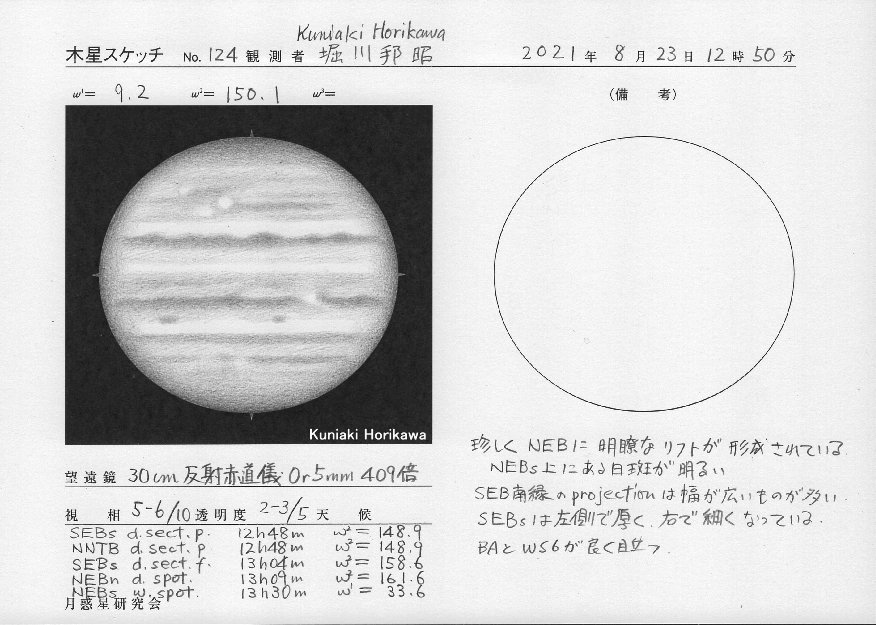 Kuniaki Horikawa
木星スケッチ No. 124 観測者 堀川邦昭 2021年 8月 23日 12時 50分
ω¹= 9.2 ω²= 150.1 ω³=
(備 考)
Kuniaki Horikawa
珍しくNEBに明瞭なリフトが形成されている.
NEBs上にある白斑が明るい
SEB南縁のprojectionは幅が広いものが多い.
SEBsは左側で厚く、右で細くなっている.
BAとWS6が良く目立つ
望遠鏡 30cm反射赤道儀 Or5mm 409倍
視 相 5-6/10 透明度 2-3/5 天 候
SEBs d.sect.p. 12h48m ω²= 148.9
NNTB d.sect.p 12h48m ω²= 148.9
SEBs d.sect.f. 13h04m ω²= 158.6
NEBn d.spot. 13h09m ω²= 161.6
NEBs w.spot. 13h30m ω¹= 33.6
月惑星研究会